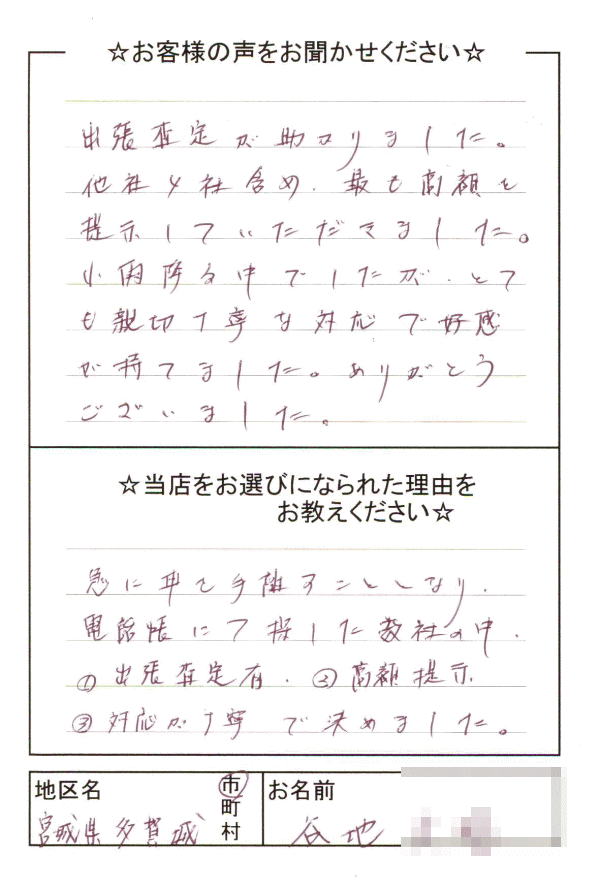 ☆お客様の声をお聞かせください☆
出張査定が助かりました。
他社4社含め、最も高額を
提示していただきました。
小雨降る中でしたが、とて
も親切丁寧な対応で好感
が持てました。ありがとう
ございました。
☆当店をお選びになられた理由を
お教えください☆
急に車を手離すこととなり、
電話帳にて探した数社の中、
①出張査定有、②高額提示
③対応が丁寧で決めました。
地区名 宮城県多賀城 市町村 お名前 谷地